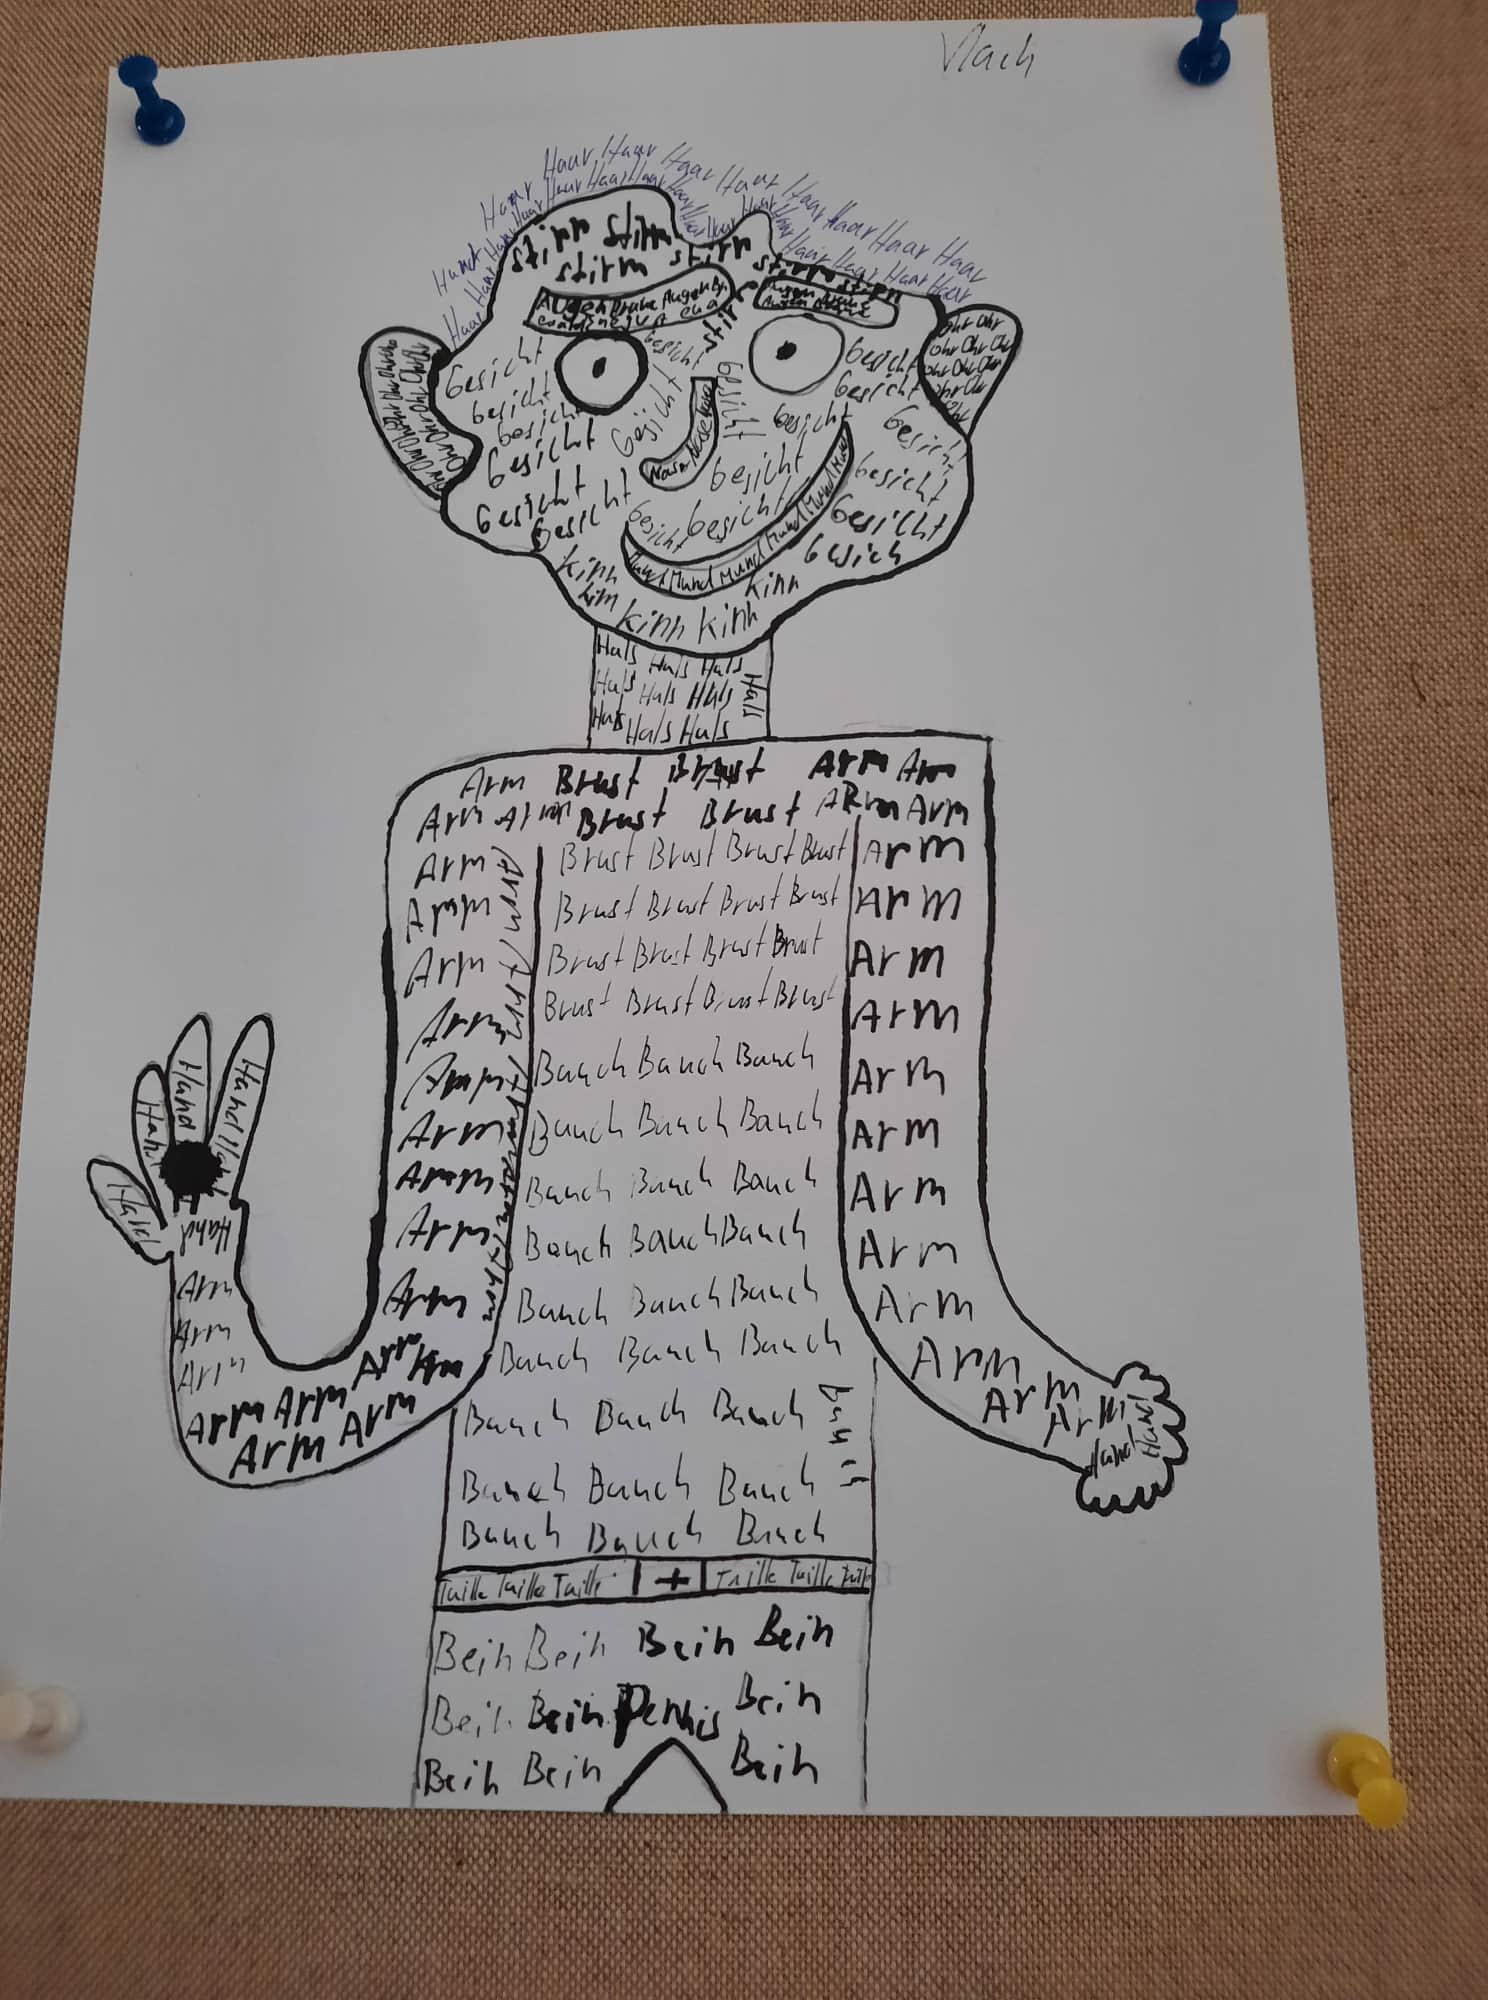 Vlach
Haar Haar Haar Haar Haar Haar Haar Haar Haar
Haar Haar Haar Haar Haar Haar Haar Haar
stirn stirn stirn
stirm stirn stirn
Augenbraue Augenb
Augen braue
Ohr Ohr
Ohr Ohr Ohr
Ohr Ohr Ohr
Ohr Ohr
Ohr
Ohr Ohr Ohr Ohr
Gesicht Gesicht Gesicht
Gesicht Gesicht Gesicht
Gesicht Gesicht Gesicht Gesicht
Gesicht Nase Nase Nase Gesicht Gesicht
Gesicht Gesicht Gesicht Gesicht Gesicht
Gesicht Gesich
Mund Mund Mund Mund Mund Mund Mund
kinn kinn
kinn kinn kinn
Hals Hals Hals
Hals Hals Hals Hals
Hals Hals Hals
Arm Brust Brust Arm Arm
Arm Arm Brust Brust Arm Arm
Arm Brust Brust Brust Brust Arm
Arm Brust Brust Brust Brust Arm
Arm Brust Brust Brust Brust Arm
Arm Brust Brust Brust Brust Arm
Arm Bauch Bauch Bauch Arm
Arm Bauch Bauch Bauch Arm
Arm Bauch Bauch Bauch Arm
Arm Bauch Bauch Bauch Arm
Arm Bauch Bauch Bauch Arm
Arm Arm Bauch Bauch Bauch Arm
Arm Arm Arm Bauch Bauch Bauch Arm
Arm Bauch Bauch Bauch Arm
Bauch Bauch Bauch
Hand Hand Hand Hand
Hand
Arm
Arm
Arm
Hand Hand
Taille Taille Taille + Taille Taille Taille
Bein Bein Bein Bein
Bein Bein Pennis Bein
Bein Bein Bein